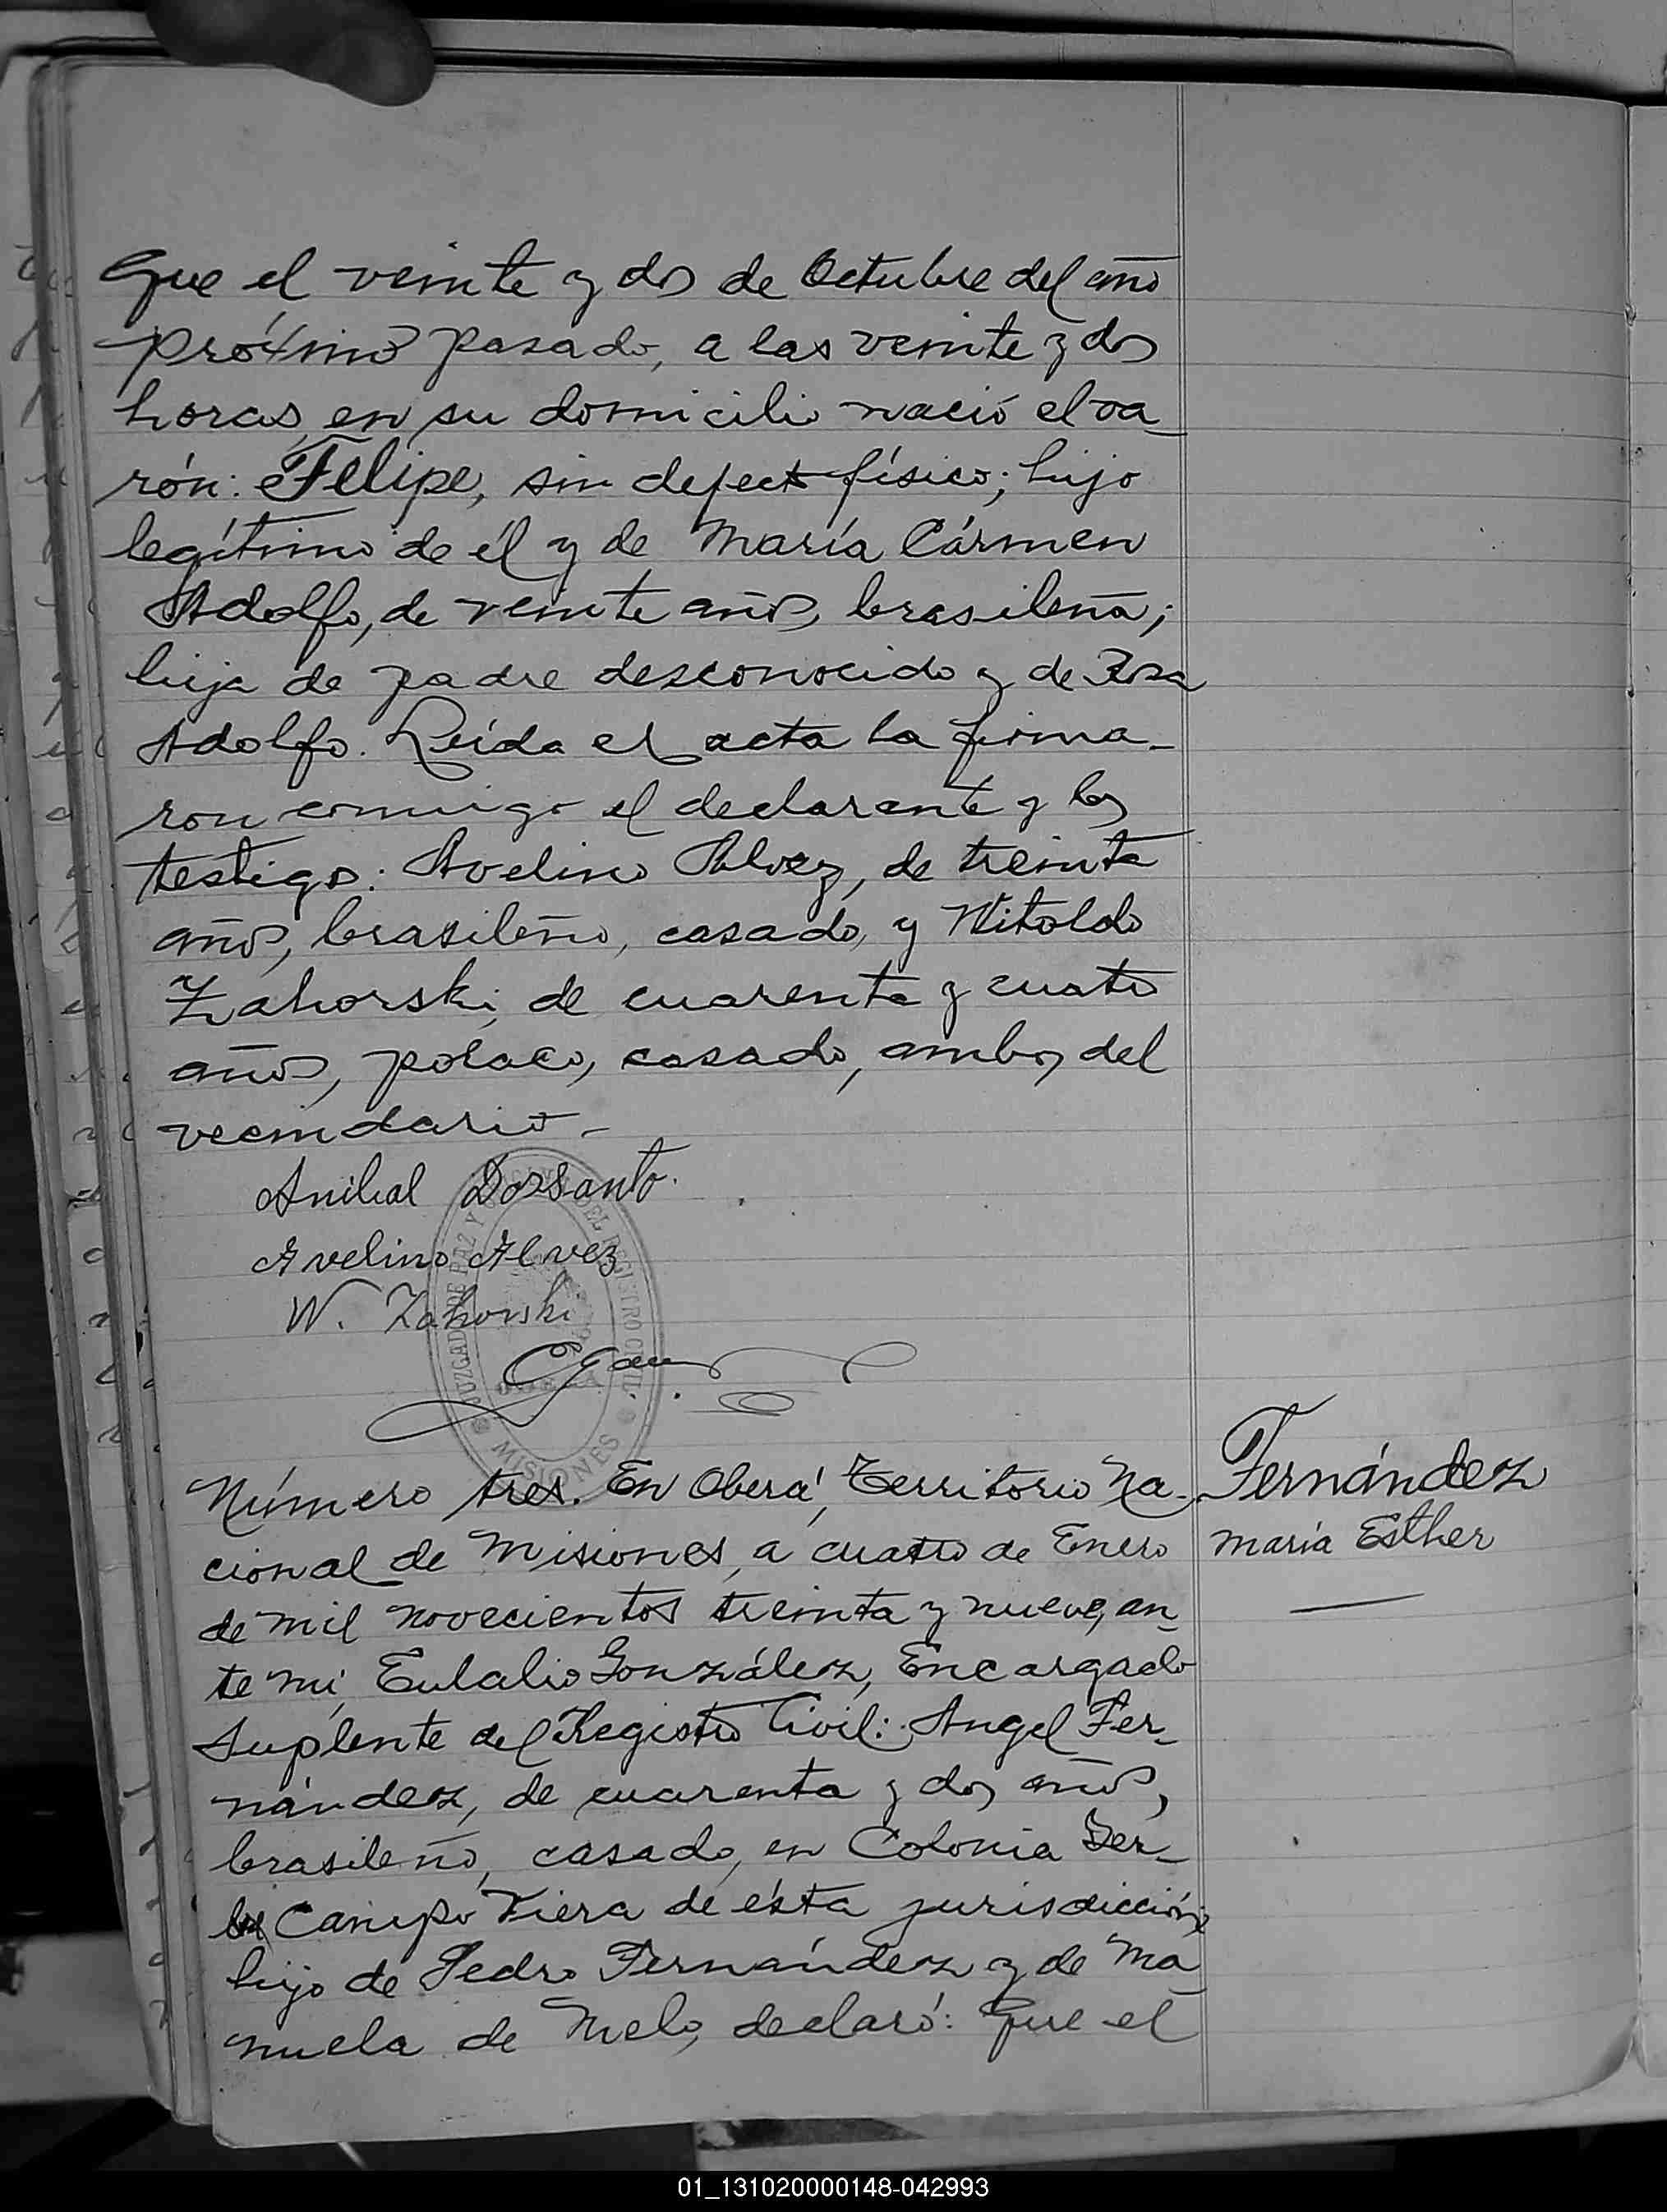 Que el veinte y dos de Octubre del año
próximo pasado, a las veinte y dos
horas, en su domicilio nació el va-
rón: Felipe, sin defecto físico; hijo
legítimo de él y de María Cármen
Adolfo, de veinte años, brasileña;
hija de padre desconocido y de Rosa
Adolfo. Leída el acta la firma-
ron conmigo el declarante y los
testigos: Avelino Alvez, de treinta
años, brasileño, casado, y Witoldo
Zahorski, de cuarenta y cuatro
años, polaco, casado, ambos del
vecindario.-
Anibal DosSanto.
Avelino Alvez
W. Zahorski
JUZGADO DE PAZ Y OFICINA DEL REGISTRO CIVIL
MISIONES
Número tres. En Oberá, Territorio Na-
cional de Misiones, a cuatro de Enero
de mil novecientos treinta y nueve, an-
te mí, Eulalio González, Encargado
Suplente del Registro Civil: Angel Fer-
nández, de cuarenta y dos años,
brasileño, casado, en Colonia
Campo Viera de ésta jurisdicción,
hijo de Pedro Fernández y de Ma
nuela de Melo, declaró: Que el
Fernández
María Esther
01_131020000148-042993